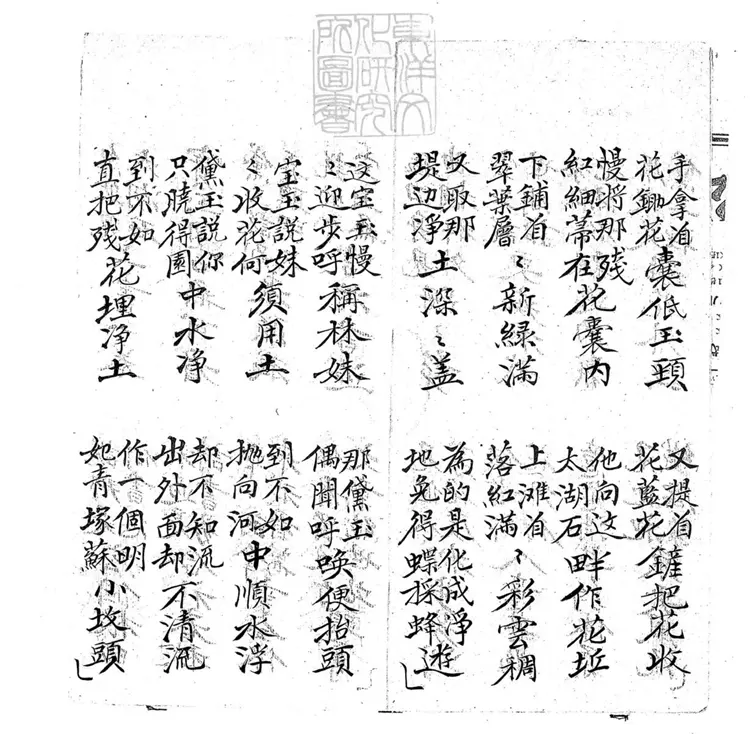 東洋文化研究所圖書
手拿着花鋤花囊低玉頸
又提着花藍花鏟把花收
慢將那残紅細蒂在花囊内
他向这太湖石畔作花坵
下鋪着翠葉層〻新緑滿
上滩着落紅滿〻彩雲稠
又取那堤边净土深〻盖
為的是化成淨地免得蝶採蜂遊
这宝玉慢〻迎步呼稱林妹
那黛玉偶聞呼喚便抬頭
宝玉説妹〻收花何須用土
到不如抛向河中順水浮
黛玉説你只曉得園中水净
却不知流出外面却不清流
到不如直把残花埋净土
作一個明妃青塚蘇小坟頭